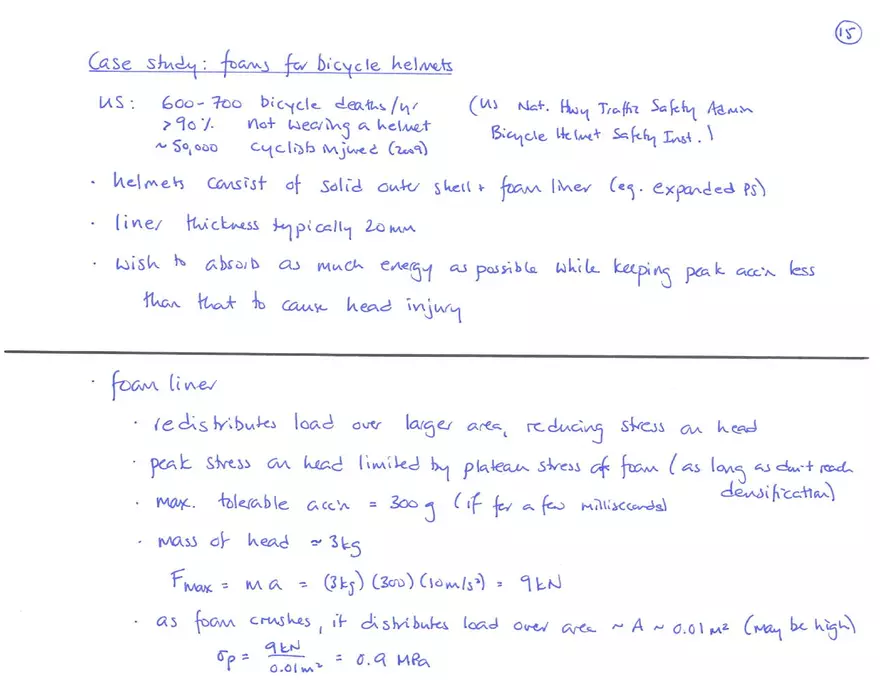 15
Case study: foams for bicycle helmets
US: 600-700 bicycle deaths/yr (US Nat. Hwy Traffic Safety Admin
>90% not wearing a helmet Bicycle Helmet Safety Inst.)
~50,000 cyclists injured (2009)
· helmets consist of solid outer shell + foam liner (eg. expanded PS)
· liner thickness typically 20mm
· wish to absorb as much energy as possible while keeping peak acc'n less
than that to cause head injury
· foam liner
· redistributes load over larger area, reducing stress on head
· peak stress on head limited by plateau stress of foam (as long as don't reach
densification)
· max. tolerable acc'n = 300 g (if for a few milliseconds)
· mass of head ≈ 3kg
Fmax = ma = (3kg)(300)(10m/s²) = 9kN
· as foam crushes, it distributes load over area ~ A ~ 0.01m² (may be high)
σp = 9kN / 0.01m² = 0.9 MPa